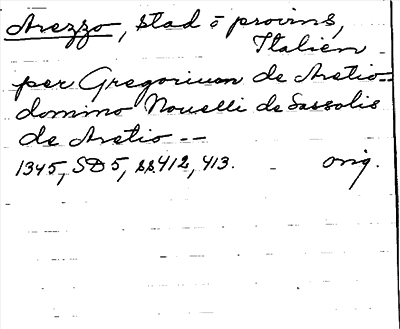 Arezzo, stad o provins,
Italien
per Gregorium de Aretio --
domino Nouelli de Sassolis
de Aretio --
1345, SD 5, ss 412, 413. orig.